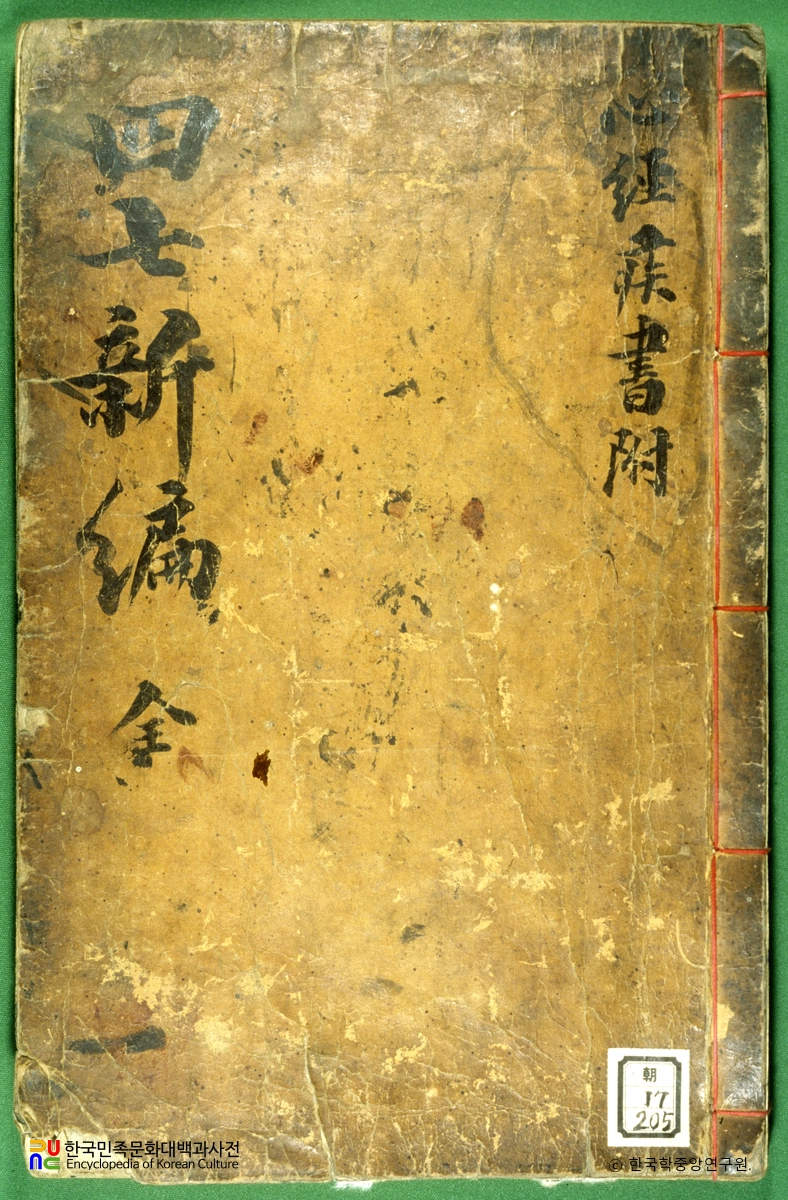 心經疾書附
四七新編 全
一
朝
17
205
한국민족문화대백과사전
Encyclopedia of Korean Culture
© 한국학중앙연구원